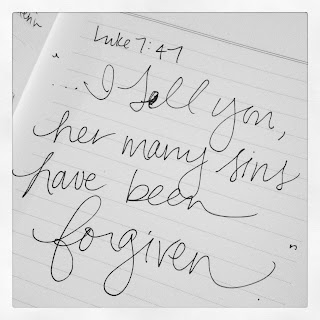 Luke 7:47
"...I tell you,
her many sins
have been
forgiven."